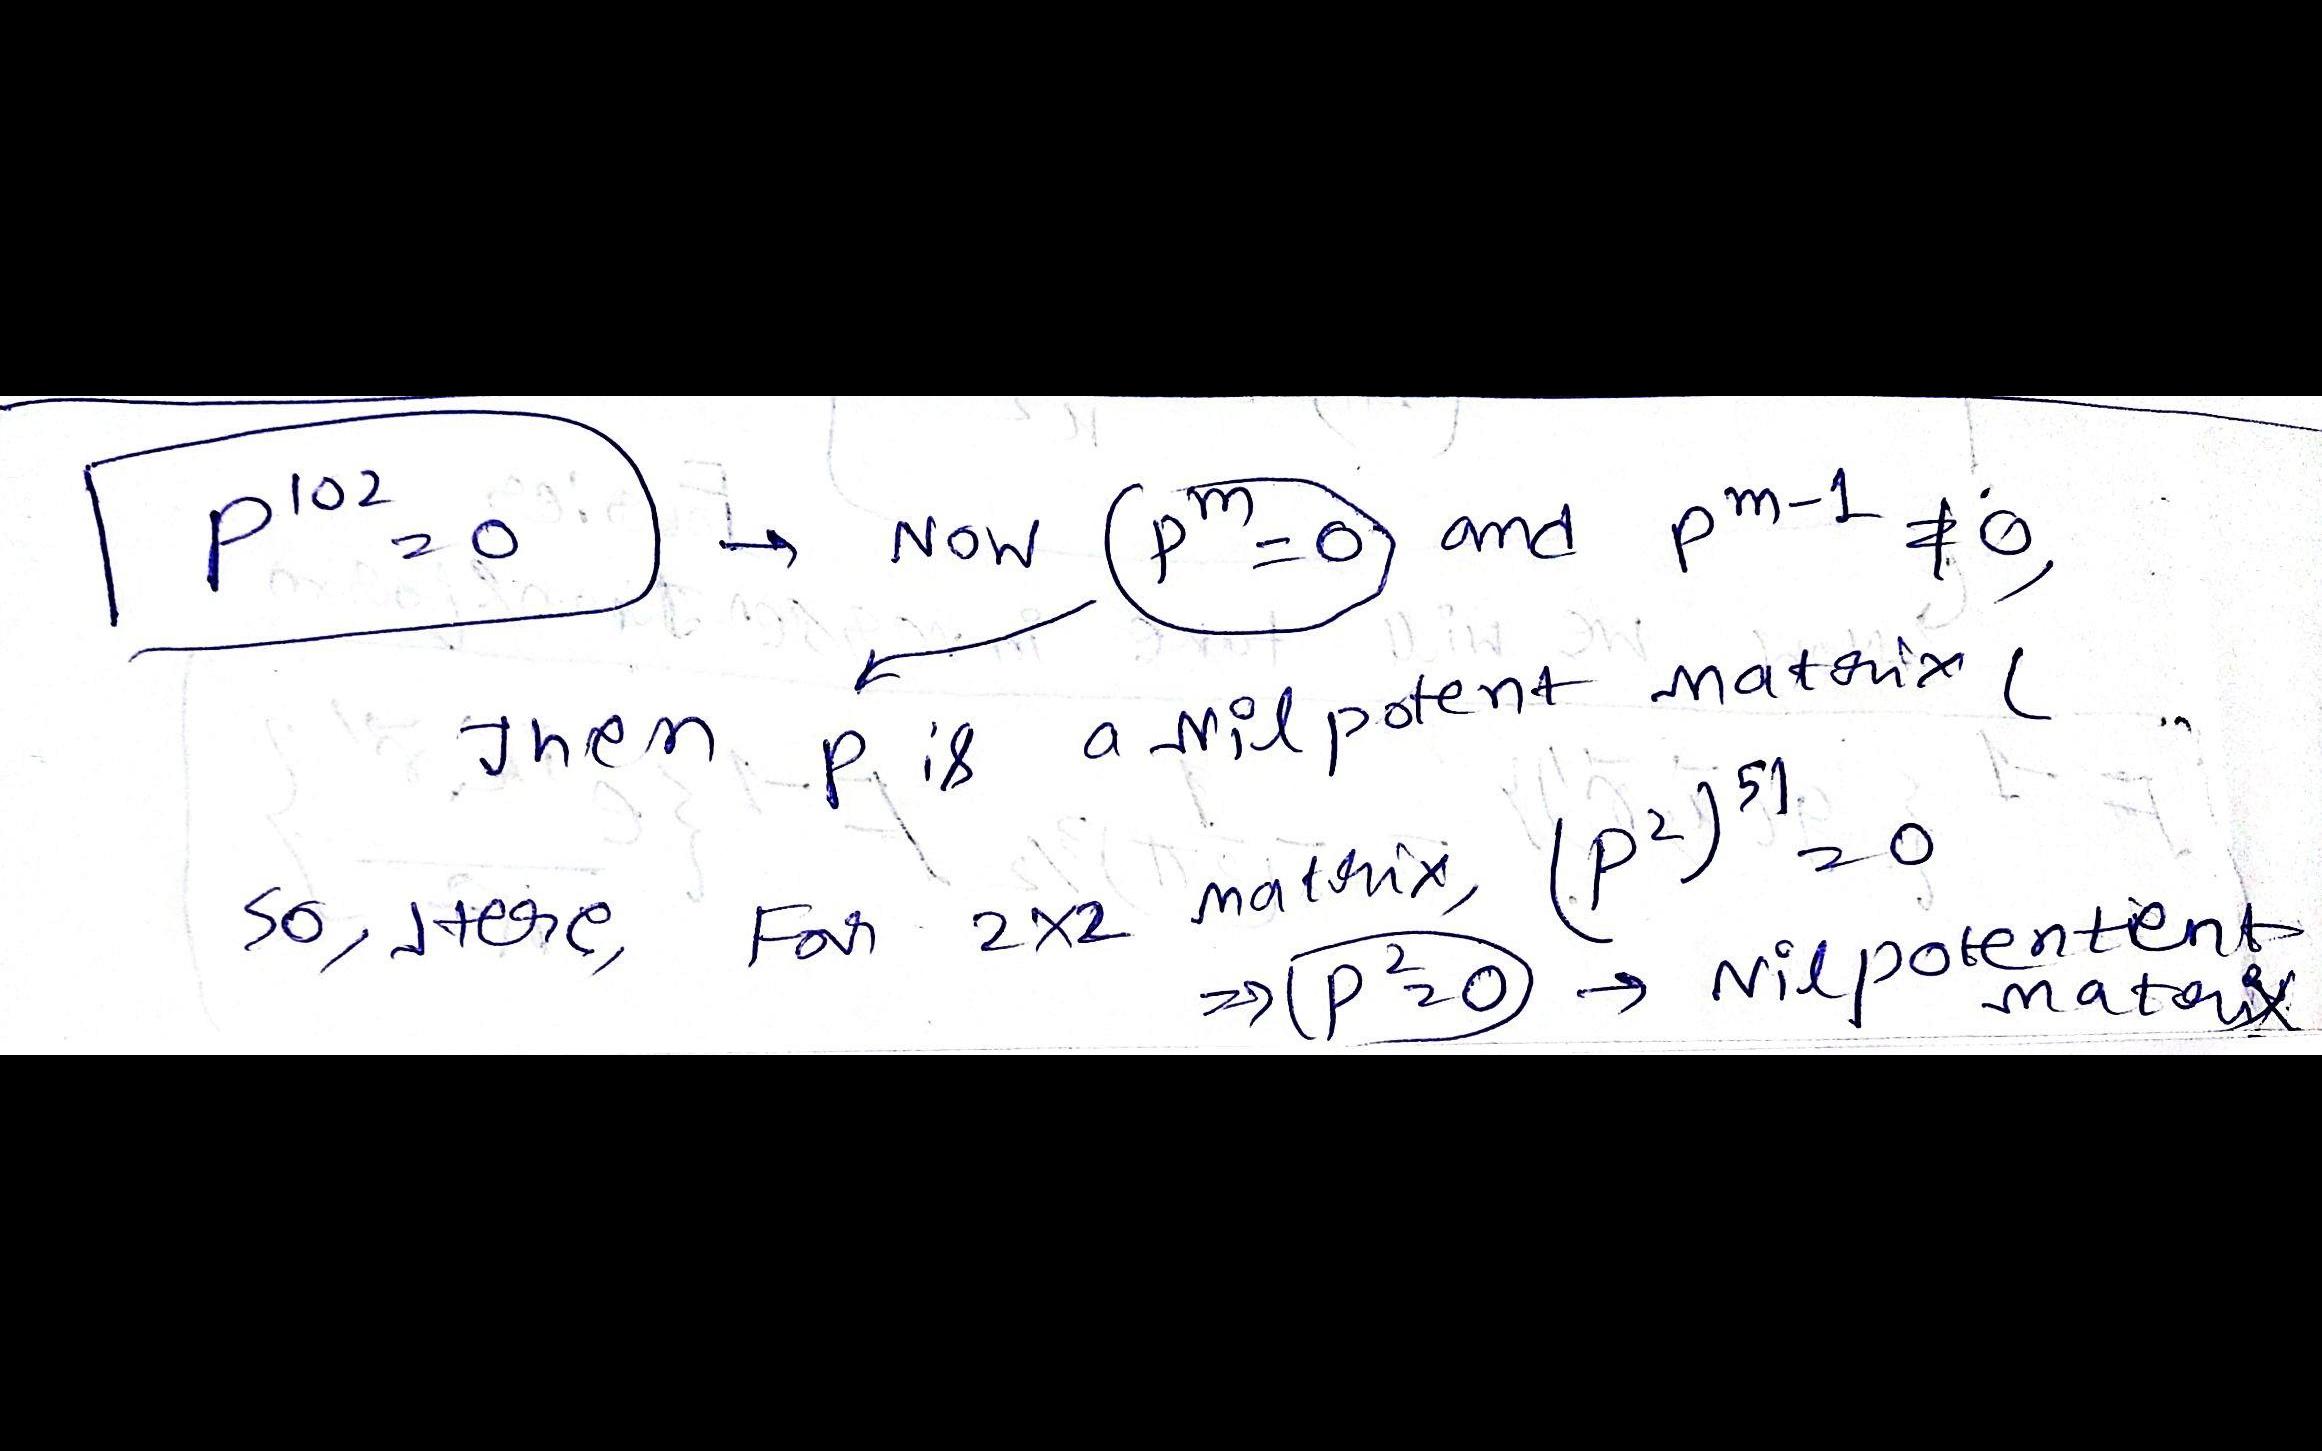 P^102 = 0 → Now (P^m = 0) and P^m-1 ≠ 0,
Then P is a Nilpotent matrix (
So, Here, For 2×2 matrix, (P^2)^51 = 0
⇒ (P^2 = 0) → Nilpotentent
matrix